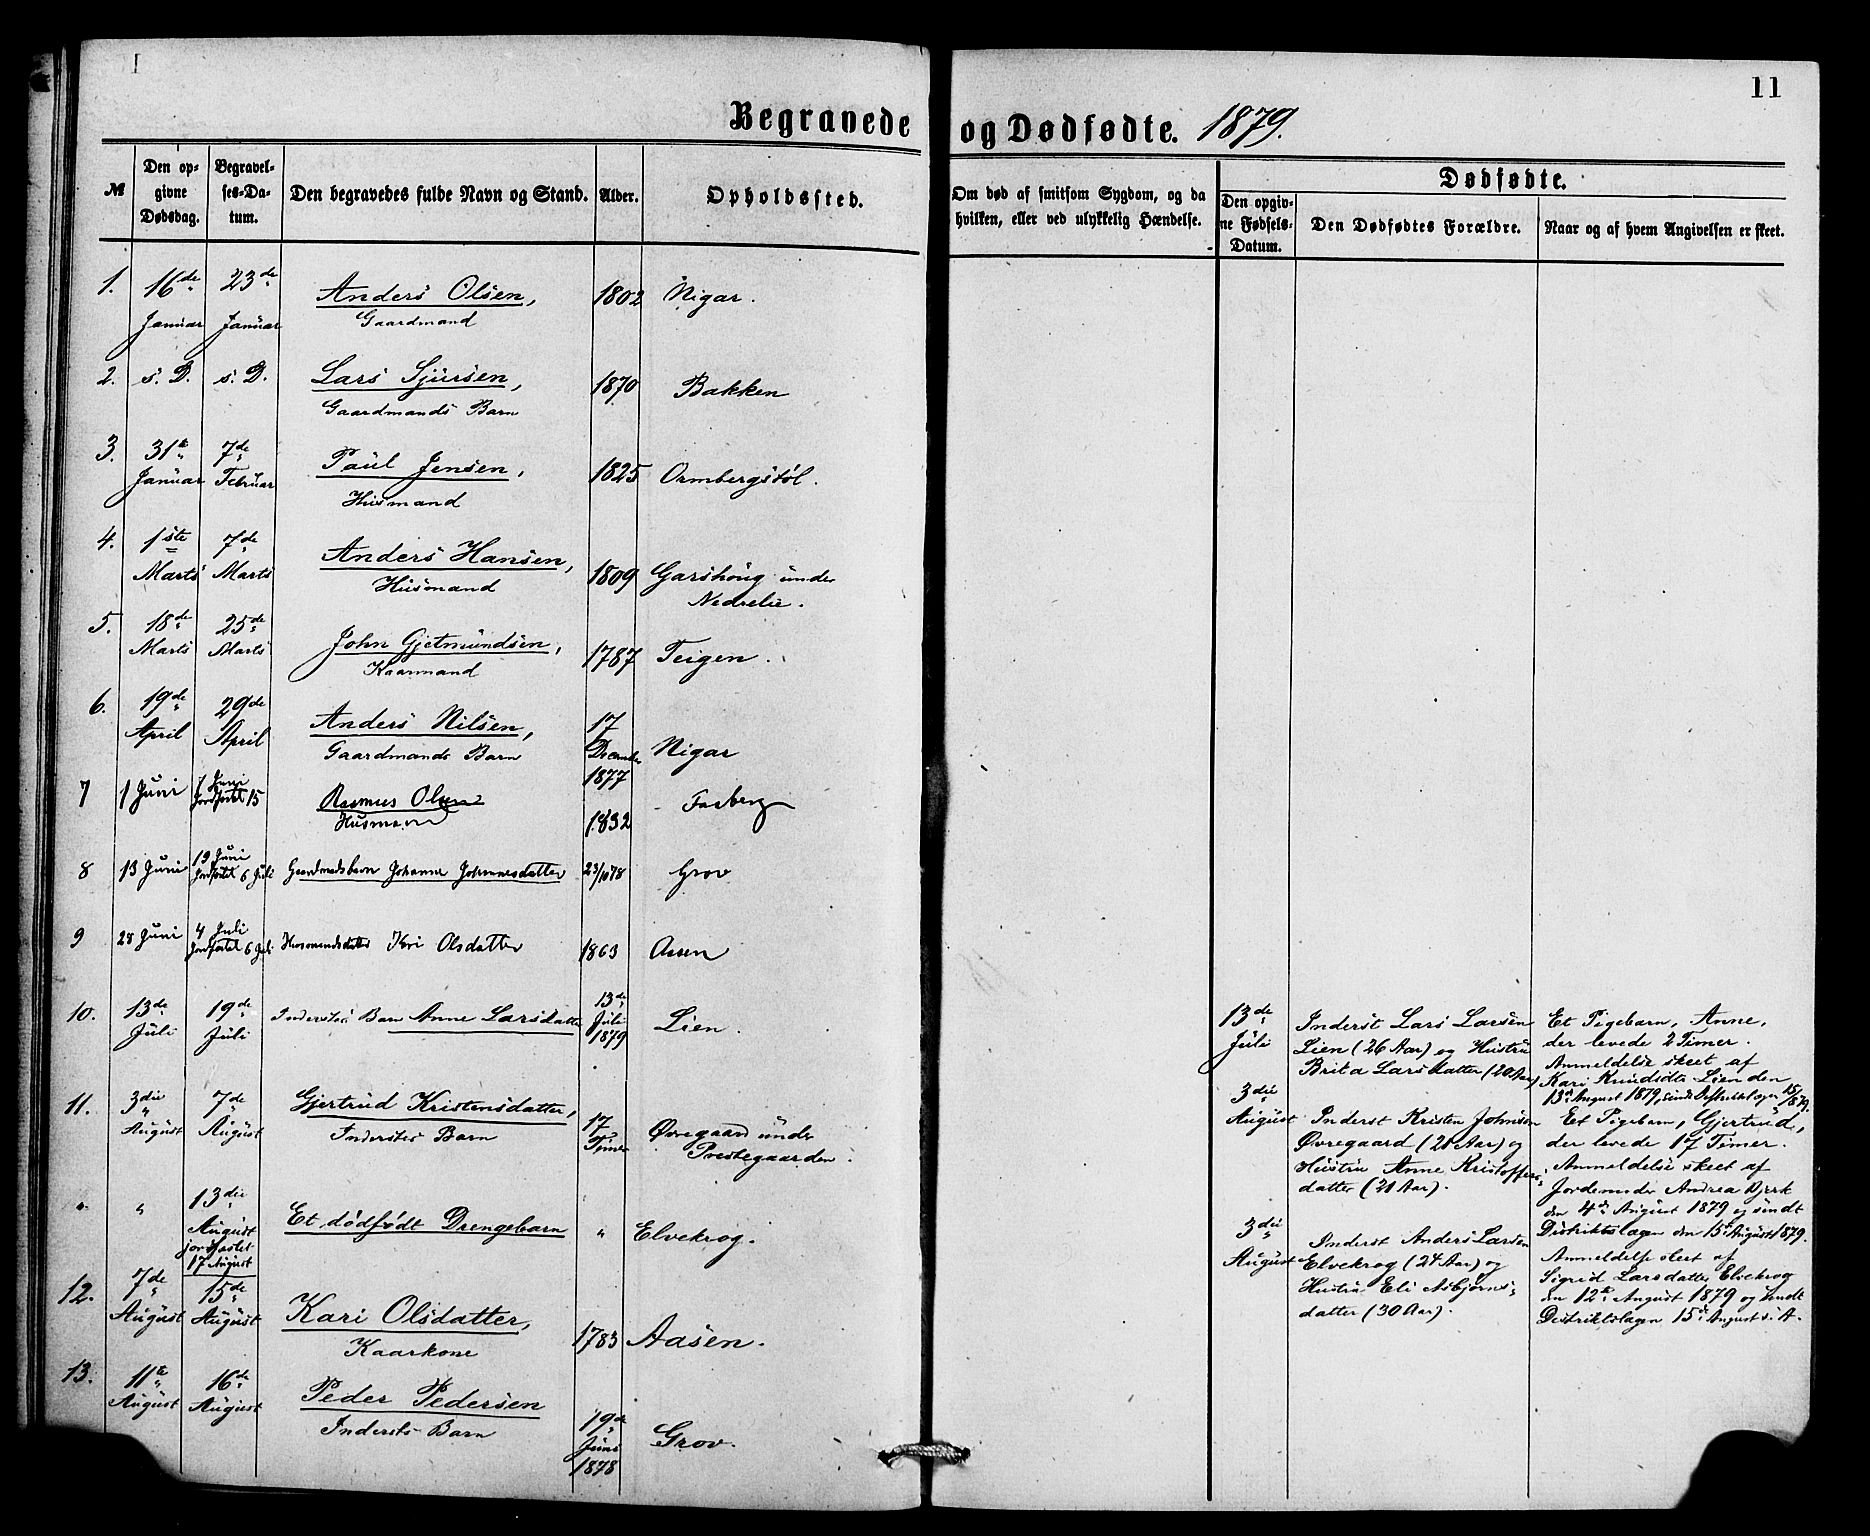 11
Begravede og Dødfødte. 1879.
№
Den opgivne Dødsdag.
Begravelses-Datum.
Den begravedes fulde Navn og Stand.
Alder.
Opholdssted.
Om død af smitsom Sygdom, og da hvilken, eller ved ulykkelig Hændelse.
Dødfødte.
Den opgivne Fødsels-Datum.
Den Dødfødtes Forældre.
Naar og af hvem Angivelsen er skeet.
1. 16de Januar 23de Januar Anders Olsen, Gaardmand 1802 Nigar.
2. s. D. s. D. Lars Sjursen, Gaardmands Barn 1870 Bakken
3. 31te Januar 7de Februar Paul Jensen, Husmand 1825 Ormbergstøl.
4. 1ste Marts 7de Marts Anders Hansen, Husmand 1809 Garshoug under Nedrelie.
5. 18de Marts 25de Marts John Gjetmundsen, Kaarmand 1787 Teigen.
6. 19de April 29de April Anders Nilsen, Gaardmands Barn 17 December 1877 Nigar
7 1 Juni 7 Juni Jordfæstet 15 Rasmus Olsen Husmand 1832 Faaberg
8 13 Juni 19 Juni Jordfæstet 6 Juli Gaardmandsbarn Johanne Johannesdatter 23/10 78 Grov
9 28 Juni 4 Juli Jordfæstet 6 Juli Husmandsdatter Kari Olsdatter 1863 Aasen
10. 13de Juli 19de Juli Inderstes Barn Anne Larsdatter 13de Juli 1879 Lien.
11. 3die August 7de August Gjertrud Kristensdatter, Inderstes Barn 17 Timer Øvregaard under Prestegaarden.
" " 13die August jordfæstet 17 August Et dødfødt Drengebarn " Elvekrog.
12. 7de August 15de August Kari Olsdatter, Kaarkone 1783 Aasen.
13. 11te August 16de August Peder Pedersen Inderstes Barn 19de Juni 1878 Grov.
13de Juli
Inderst Lars Larsen
Lien (26 Aar) og Hustru
Brita Larsdatter (20 Aar)
Et Pigebarn, Anne,
der levede 2 Timer.
Anmeldelse skeet af
Kari Knudsdtr Lien den
13de August 1879, sendt Distriktslagen 15/8 1879.
3die August
Inderst Kristen Johnsen
Øvregaard (21 Aar) og
Hustru Anne Kristoffers-
datter (21 Aar).
Et Pigebarn, Gjertrud,
der levede 17 Timer.
Anmeldelse skeet af
Jordemoder Andrea Bjerk
den 4de August 1879 og sendt
Distriktslagen den 15de August 1879.
3die August
Inderst Anders Larsen
Elvekrog (24 Aar) og
Hustru Eli Asbjørns-
datter (30 Aar).
Anmeldelse skeet af
Sigrid Larsdatter Elvekrog
den 12te August 1879 og sendt
Distriktslagen 15de August s. A.